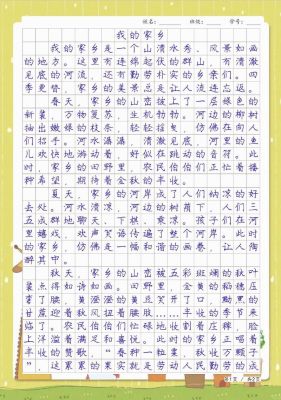 姓名：____ 班级：____ 学号：____
我的家乡
我的家乡是一个山清水秀、风景如画
的地方。这里有连绵起伏的群山，有清澈
见底的河流，还有勤劳朴实的乡亲们。四
季更替，家乡的美景总是让人流连忘返。
春天，家乡的山峦披上了一层绿色的
新装，万物复苏，生机勃勃。河边的柳树
抽出嫩绿的枝条，轻轻摇曳，仿佛在向人
们招手。河水潺潺，清澈见底，河里的鱼
儿欢快地游动着，好似在跳动的音符。此
时，家乡的田野里，农民伯伯们正忙着播
种希望，期待着金秋的丰收。
夏天，家乡的河岸成了人们纳凉的好
去处。河水清凉，河边的树荫下，人们三
五成群地聊天、下棋、乘凉。孩子们在河
里嬉戏，欢声笑语传遍了整个河岸。此时
的家乡，仿佛是一幅和谐的画卷，让人陶
醉其中。
秋天，家乡的山峦被五彩斑斓的秋叶
装点得如诗如画。田野里，金黄的稻穗压
弯了腰，黄澄澄的黄豆笑开了口，黝黑的
甘蔗迎着秋风扭着腰肢……丰收的季节来
临了。农民伯伯们忙碌地收割着庄稼，脸
上洋溢着满足和喜悦。此时的家乡正唱着
丰收的赞歌，“春种一粒粟，秋收万颗子
”，这累累的果实就是劳动人民勤劳的成
第1页 / 共2页